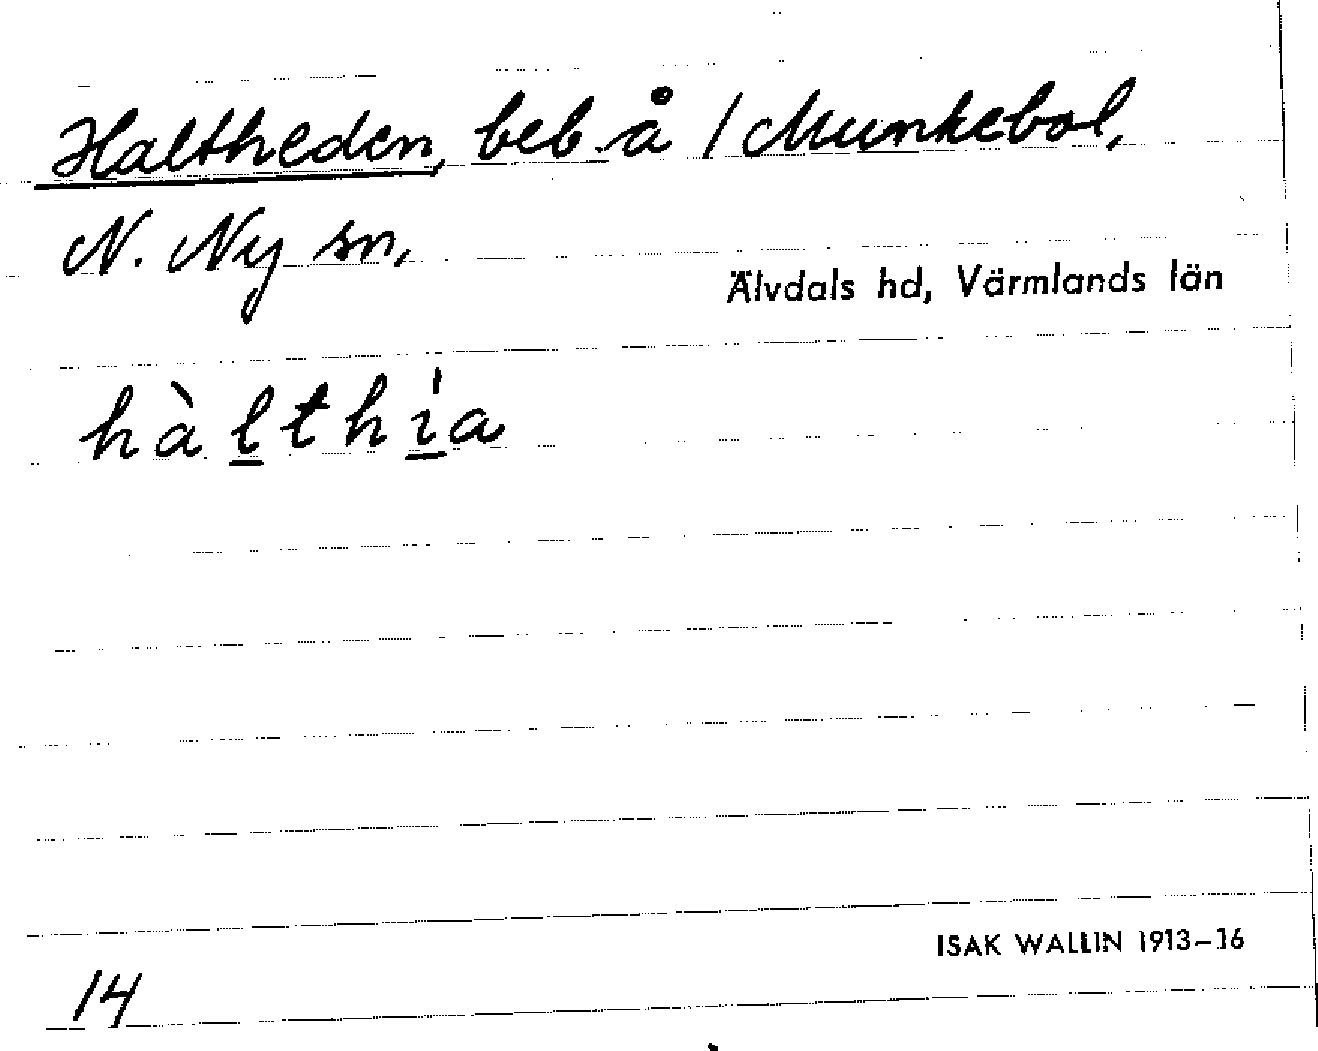 Haltheden, beb. å / Munkebol,
N. Ny sn,
Älvdals hd, Värmlands län
hàlthi̍a
ISAK WALLIN 1913–16
14